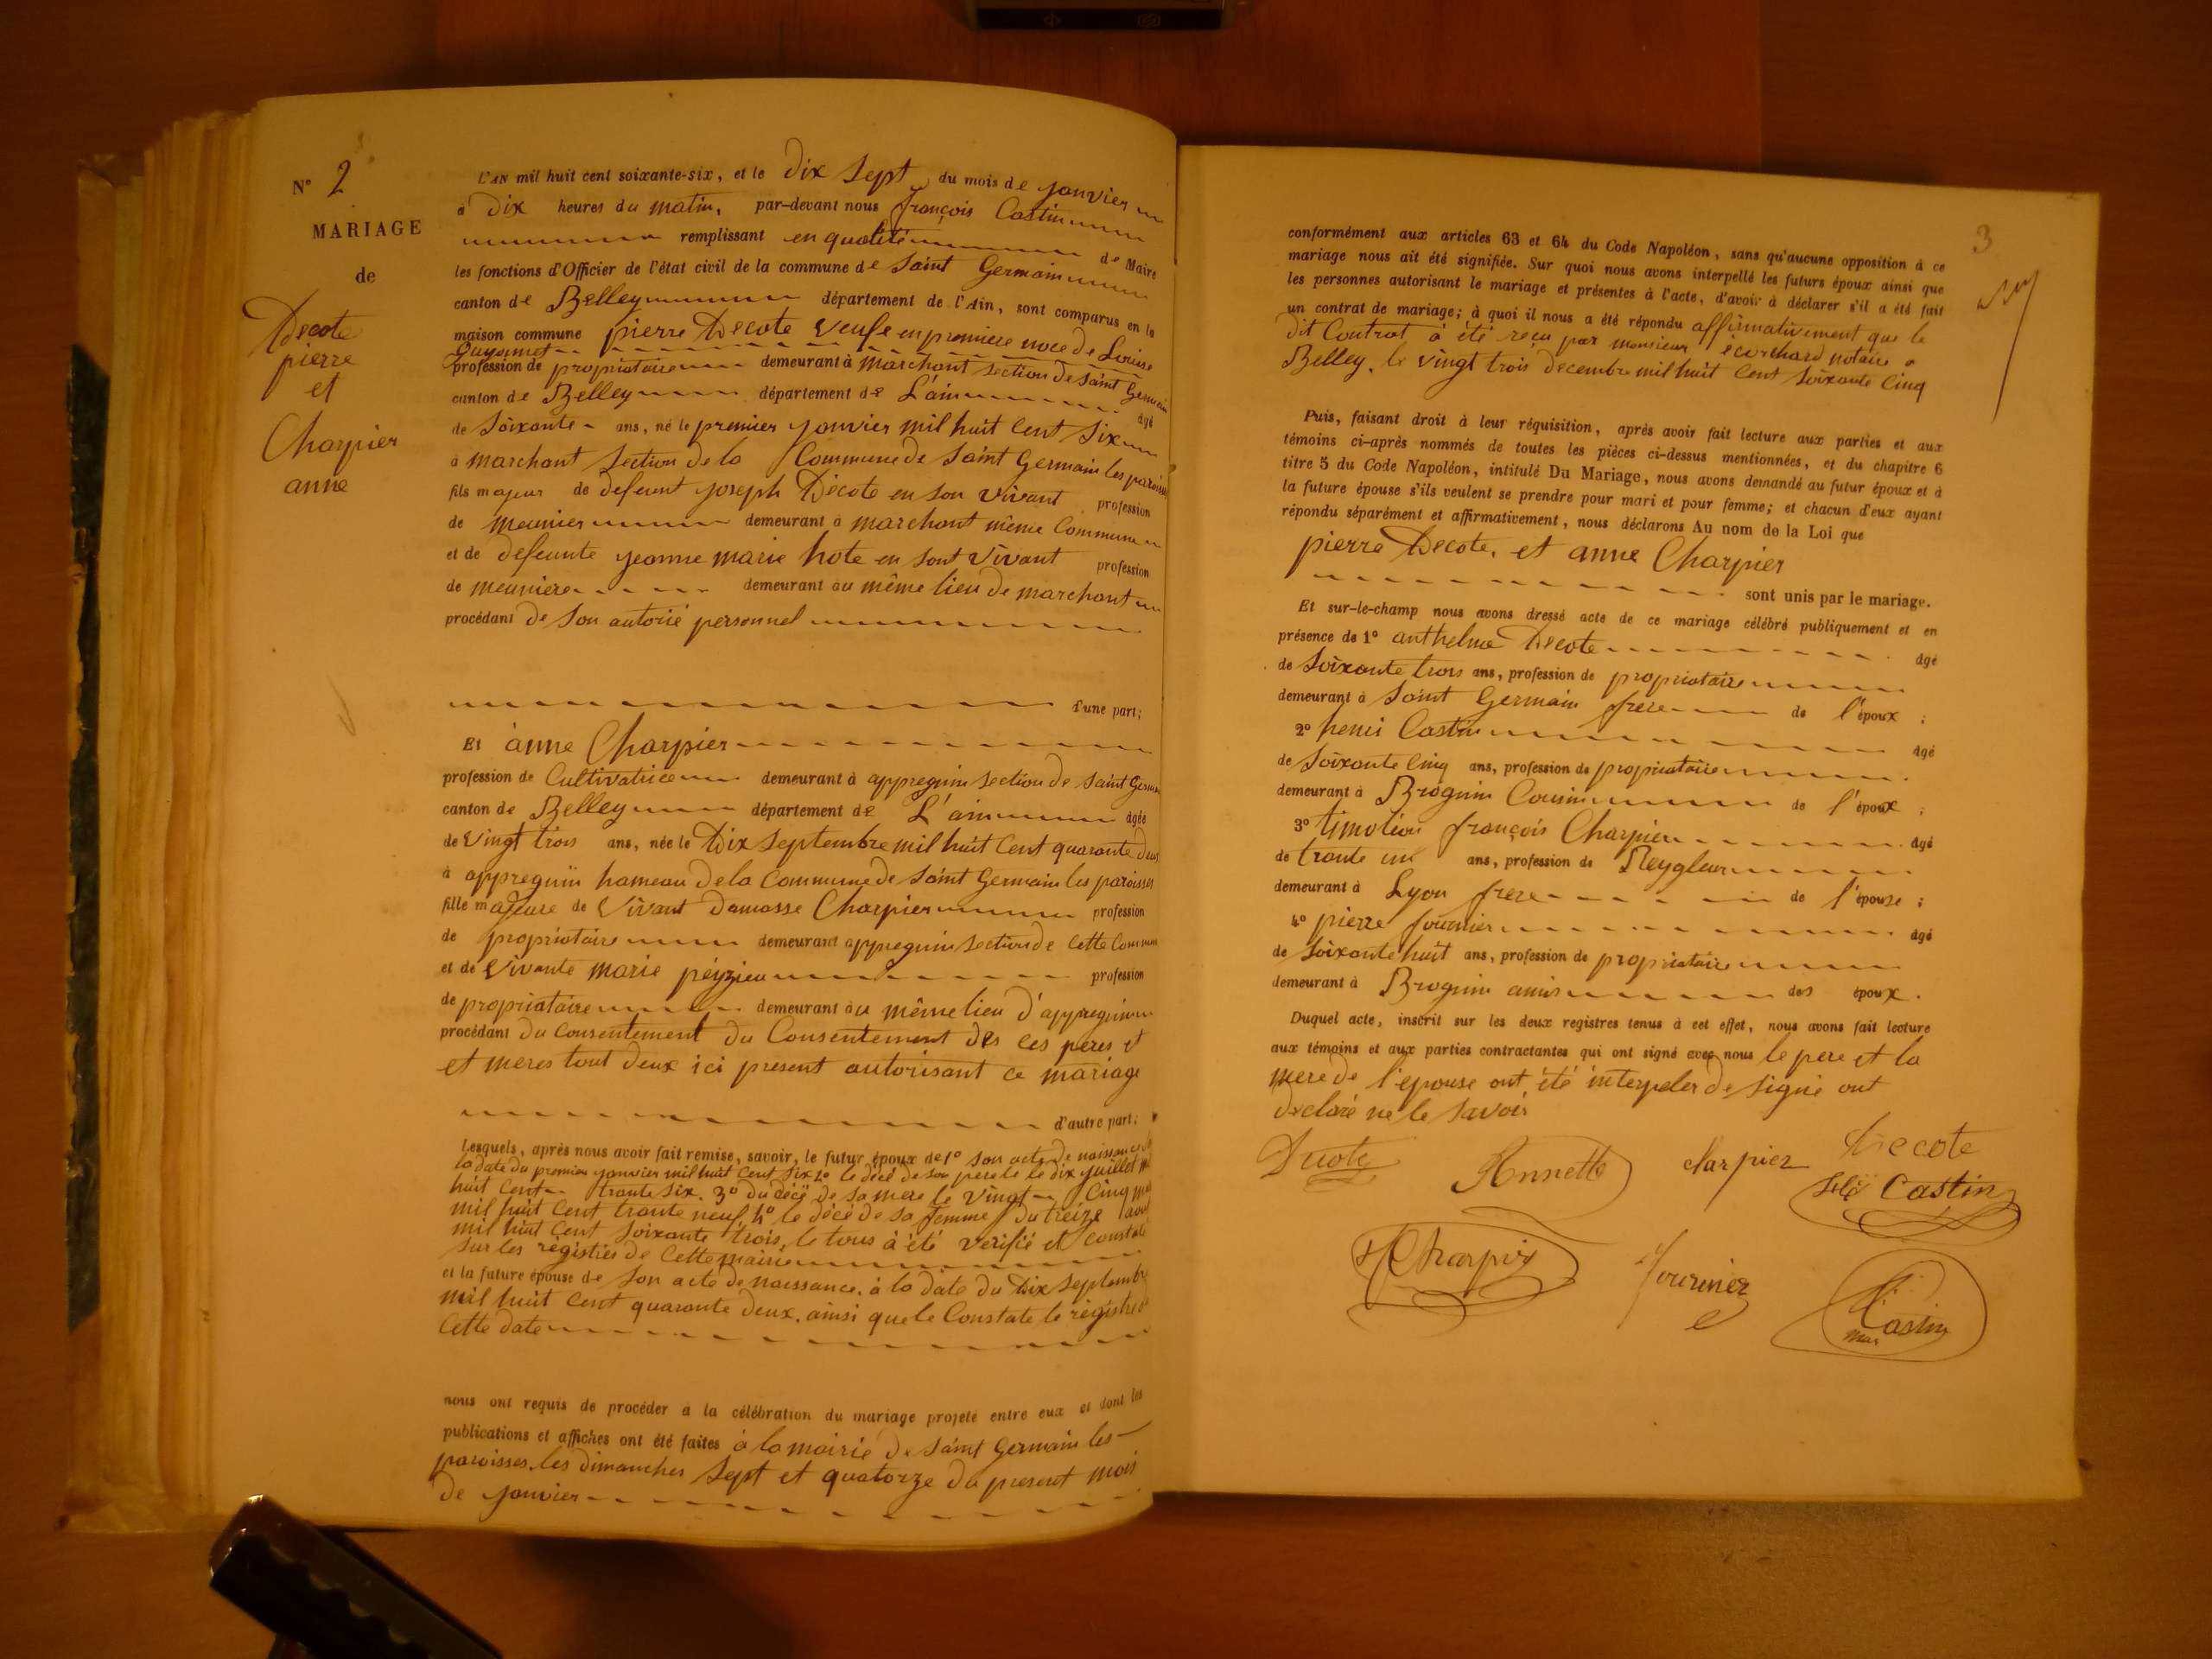 N° 2
MARIAGE
de
Decote
pierre
et
Charpier
anne
L'AN mil huit cent soixante-six, et le dix sept du mois de janvier
à dix heures du matin, par-devant nous françois Castin
remplissant en qualité de Maire
les fonctions d'Officier de l'état civil de la commune de Saint Germain
canton de Belley département de l'Ain, sont comparus en la
maison commune pierre Decote veufe en premiere noce de Louise
profession de propriataire demeurant à marchant section de saint Germain
canton de Belley département de L'ain âgé
de soixante ans, né le premier janvier mil huit cent six
à marchant section de la Commune de saint Germain les paroisses
fils majeur de defeunt joseph Decote en son vivant profession
de meunier demeurant à marchant même Commune
et de defeunte jeanne marie hote en sont vivant profession
de meuniere demeurant au même lieu de marchant
procédant de son autorié personnel
d'une part;
Et anne Charpier
profession de Cultivatrice demeurant à appregnin section de saint Germain
canton de Belley département de L'ain âgée
de vingt trois ans, née le Dix septembre mil huit cent quarante deux
à appregnin hameau de la Commune de saint Germain les paroisses
fille majeure de vivant damasse Charpier profession
de propriataire demeurant appregnin section de cette Commune
et de vivante marie peyzieu profession
de propriataire demeurant au même lieu d'appregnin
procédant du consentement du Consentement des ces peres et
et meres tout deux ici present autorisant ce mariage
d'autre part;
Lesquels, après nous avoir fait remise, savoir, le futur époux de 1° son acte de naissance
la date du premier janvier mil huit cent six 2° le décé de son pere le dix juillet mil
huit cent trante six. 3° du décé de sa mere le vingt cinq
mil huit cent trante neuf 4° le décé de sa femme du treize
mil huit cent soixante trois, le tous à été verifié et constaté
sur les régistres de cette mairie
et la future épouse de son acte de naissance. à la date du Dix septembre
mil huit cent quarante deux. ainsi que le Constate le régistre
cette date
nous ont requis de procéder à la célébration du mariage projeté entre eux et dont les
publications et affiches ont été faites à la mairie de saint Germain les
paroisses les dimanches sept et quatorze du present mois
de janvier
3
conformément aux articles 63 et 64 du Code Napoléon, sans qu'aucune opposition à ce
mariage nous ait été signifiée. Sur quoi nous avons interpellé les futurs époux ainsi que
les personnes autorisant le mariage et présentes à l'acte, d'avoir à déclarer s'il a été fait
un contrat de mariage; à quoi il nous a été répondu affirmativement que le
dit Contrat à été reçu par monsieur écorchard notaire a
Belley, le vingt trois decembre mil huit cent soixante cinq
Puis, faisant droit à leur réquisition, après avoir fait lecture aux parties et aux
témoins ci-après nommés de toutes les pièces ci-dessus mentionnées, et du chapitre 6
titre 5 du Code Napoléon, intitulé Du Mariage, nous avons demandé au futur époux et à
la future épouse s'ils veulent se prendre pour mari et pour femme; et chacun d'eux ayant
répondu séparément et affirmativement, nous déclarons Au nom de la Loi que
pierre Decote, et anne Charpier
sont unis par le mariage.
Et sur-le-champ nous avons dressé acte de ce mariage célébré publiquement et en
présence de 1° anthelme Decote âgé
de soixante trois ans, profession de propriataire
demeurant à saint Germain frere de l'époux ;
2° henri Castin âgé
de soixante cinq ans, profession de propriataire
demeurant à Brognin Cousin de l'époux ;
3° timoléon françois Charpier âgé
de trante un ans, profession de
demeurant à Lyon frere de l'épouse ;
4° pierre fournier âgé
de soixante huit ans, profession de propriataire
demeurant à Brognin amis des époux.
Duquel acte, inscrit sur les deux registres tenus à cet effet, nous avons fait lecture
aux témoins et aux parties contractantes qui ont signé avec nous le pere et la
mere de l'epouse ont été interpeler de signé ont
declaré ne le savoir
Annette charpier Decote
Castin
Charpier
fournier
Castin